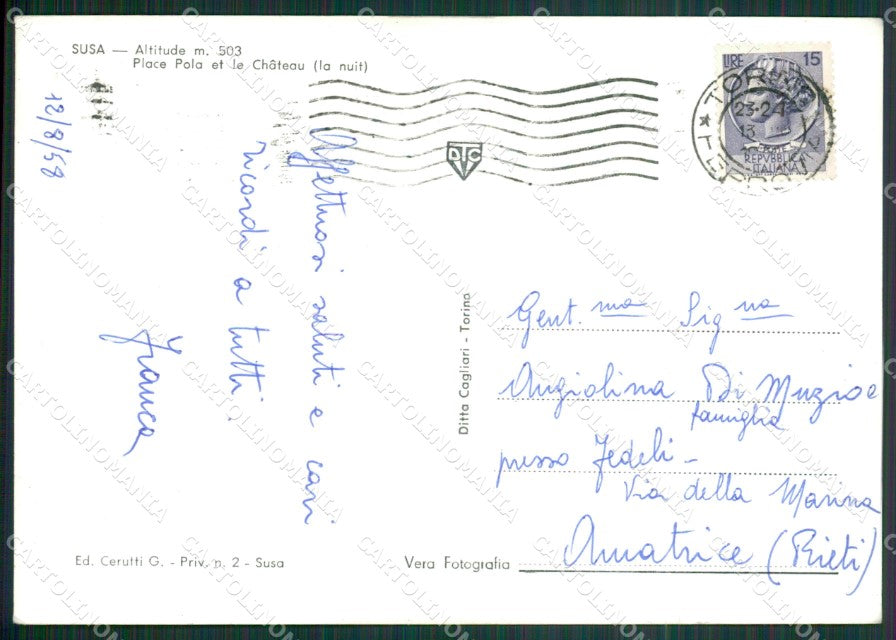 SUSA — Altitude m. 503
Place Pola et le Château (la nuit)
12/8/58
Affettuosi saluti e cari
ricordi a tutti.
Franca
DTC
LIRE 15
REPVBBLICA
ITALIANA
TORINO
Ditta Cagliari - Torino
Gent.ma Sig.na
Angiolina Di Muzio e
famiglia
presso Fedeli -
Via della Marina
Amatrice (Rieti)
Ed. Cerutti G. - Priv. n. 2 - Susa
Vera Fotografia
CARTOLINOMANIA